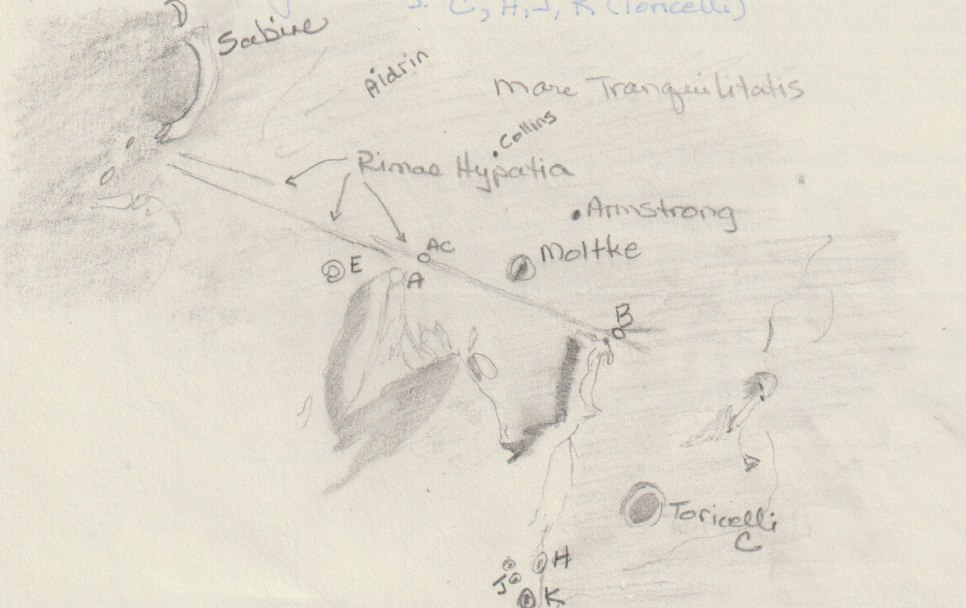 J. C, H, J, K (Toricelli)
Sabine
Aldrin
Mare Tranquilitatis
Collins
Rimae Hypatia
Armstrong
AC
Moltke
E
A
B
Toricelli
C
H
J
K